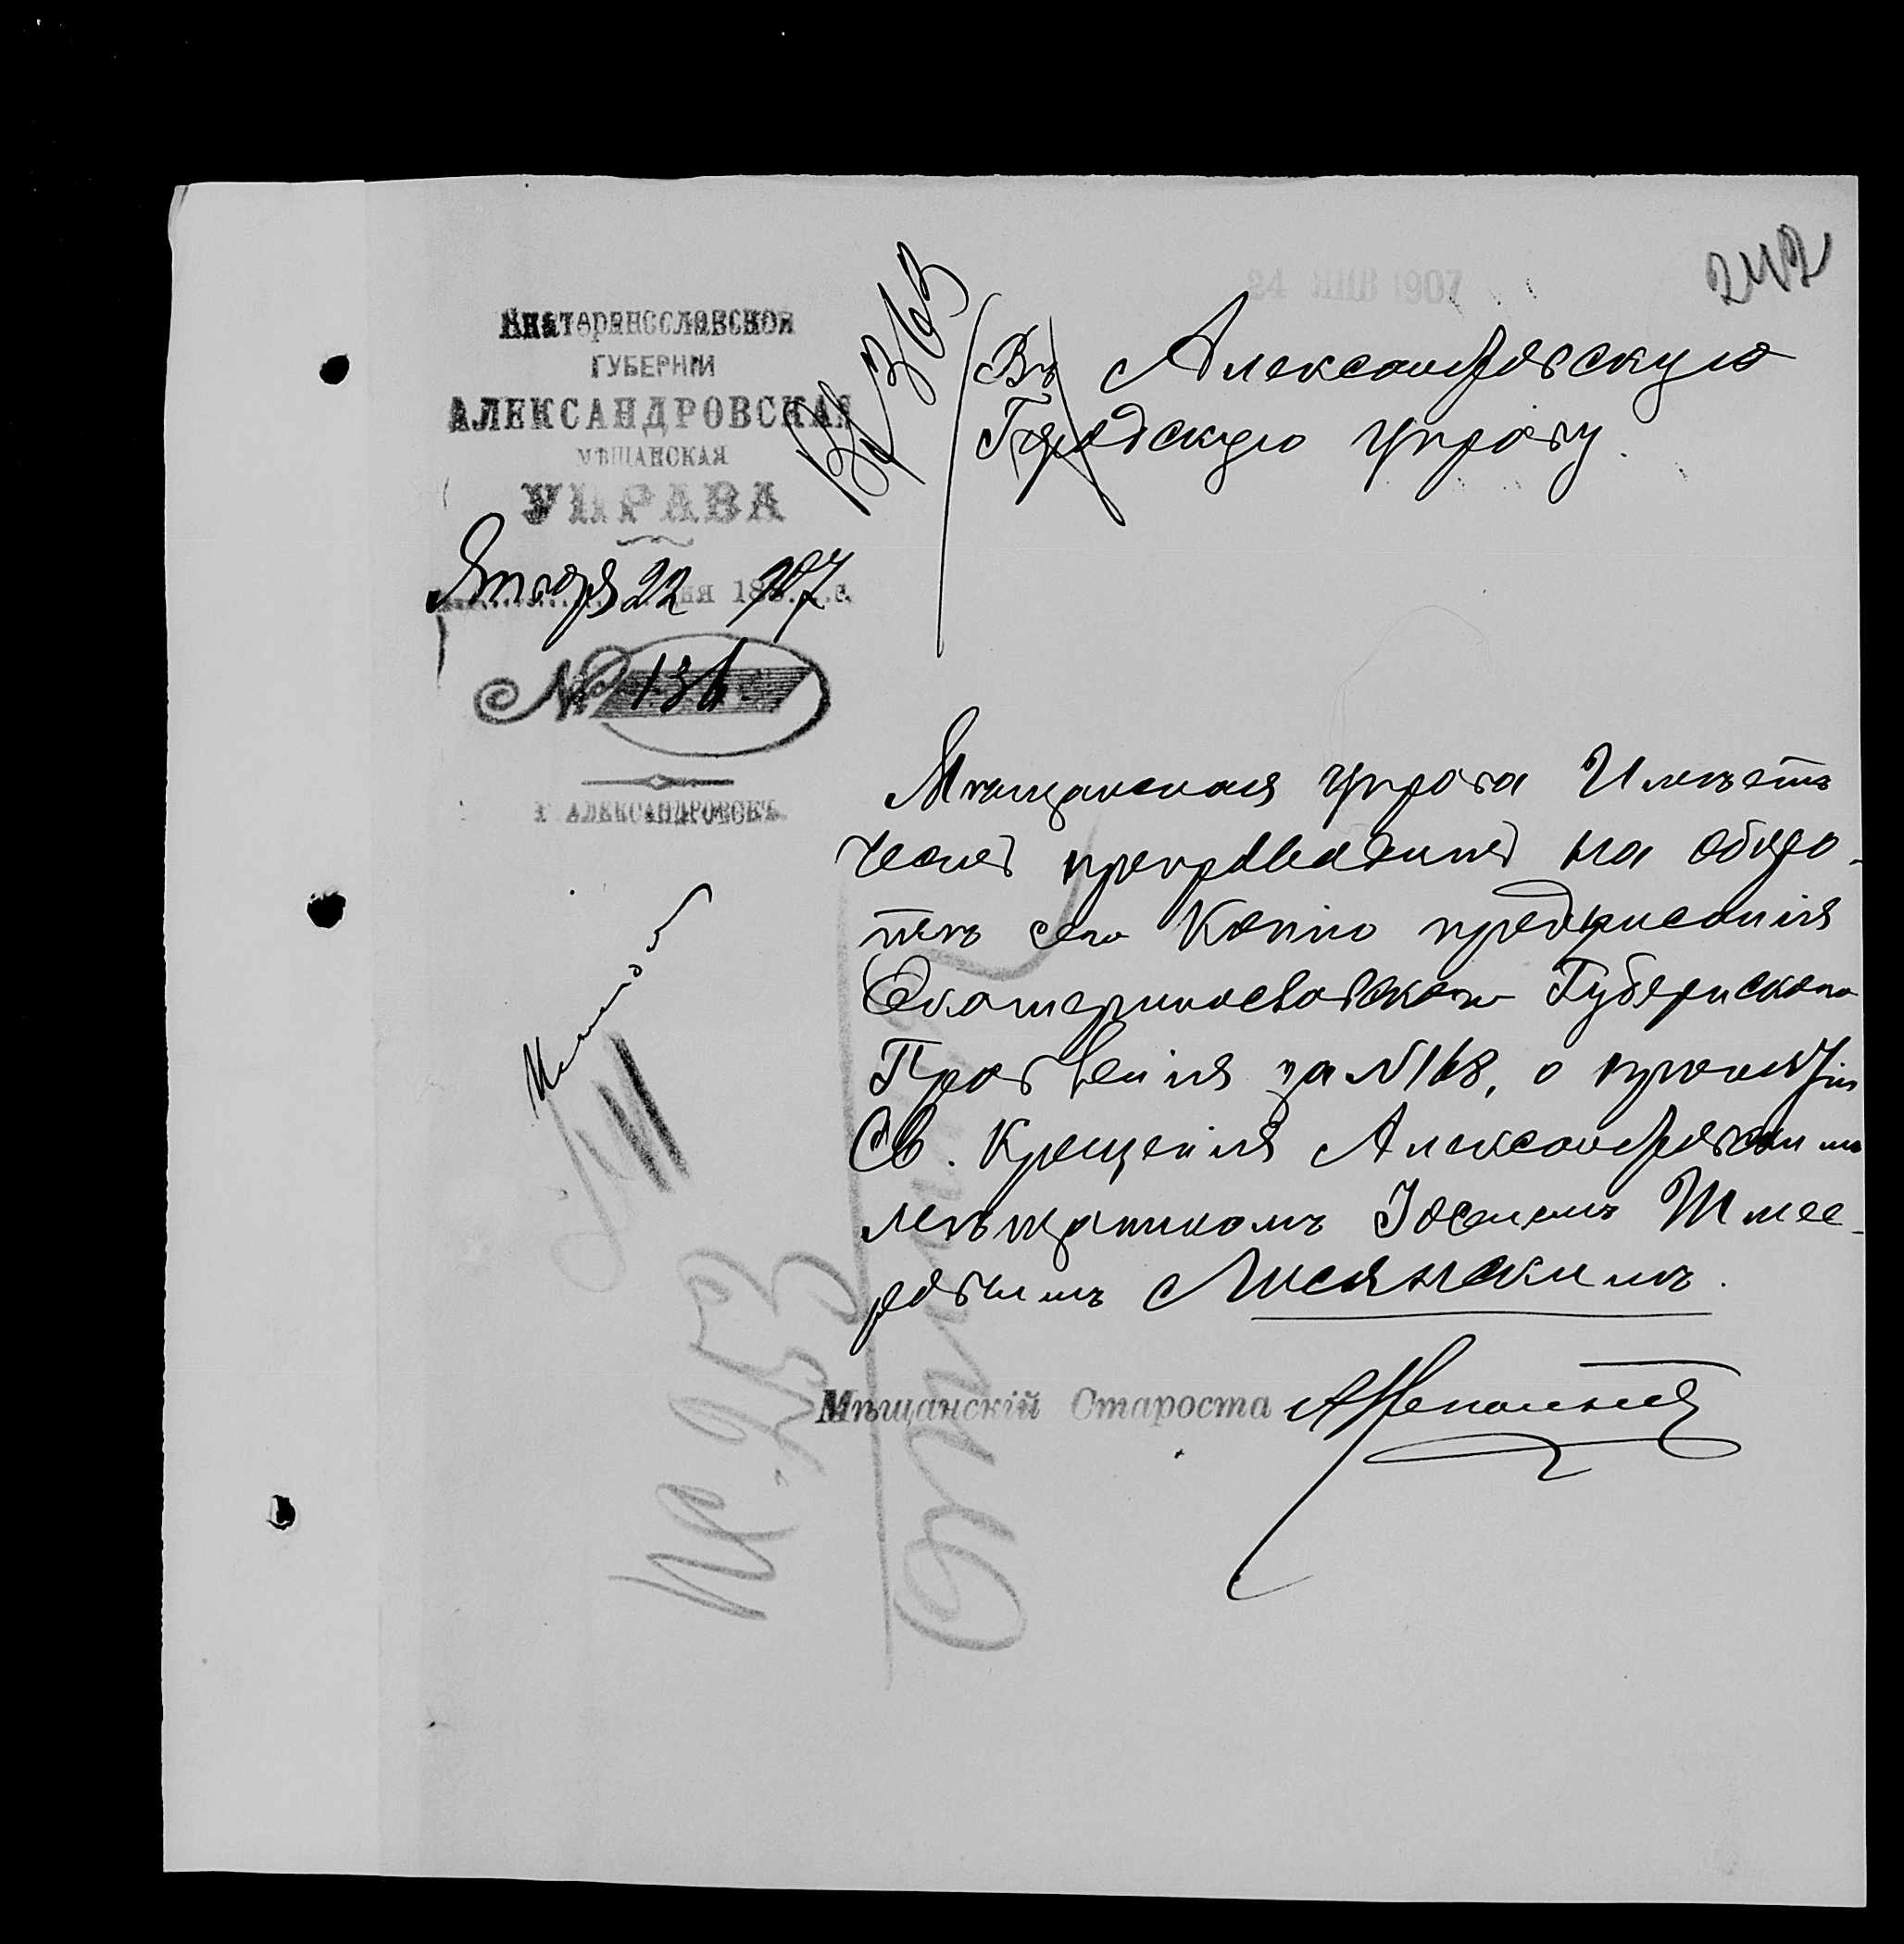 242
24 ЯНВ 1907
Вх 363
Екатеринославской
ГУБЕРНІИ
АЛЕКСАНДРОВСКАЯ
МѢЩАНСКАЯ
УПРАВА
Января 22 дня 1907 г.
№ 136
Г. АЛЕКСАНДРОВСКЪ
Въ Александровскую
Городскую управу.
Мѣщанская управа Имѣетъ
честь препроводить на оборо-
тѣ сего Копію предписанія
Екатеринославского Губернского
Правленія за № 168, о принятіи
Св. Крещенія Александровскимъ
мѣщаниномъ Іоселемъ Шмее-
ровымъ Лисянскимъ.
Мѣщанскій Староста
№. 253